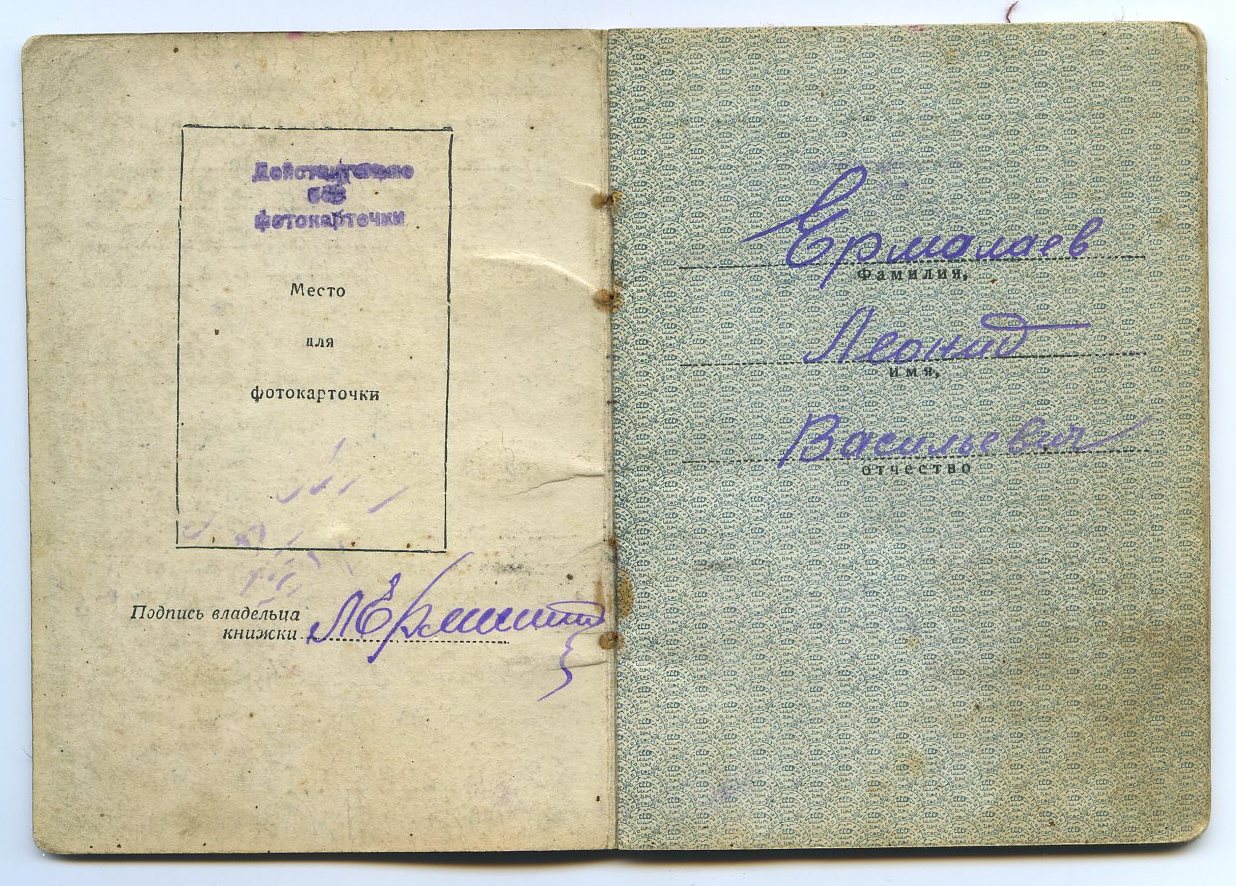 Действительно
без
фотокарточки
Место
для
фотокарточки
Подпись владельца
книжки
Ермалаев
Фамилия,
Леонид
имя,
Васильевич
отчество